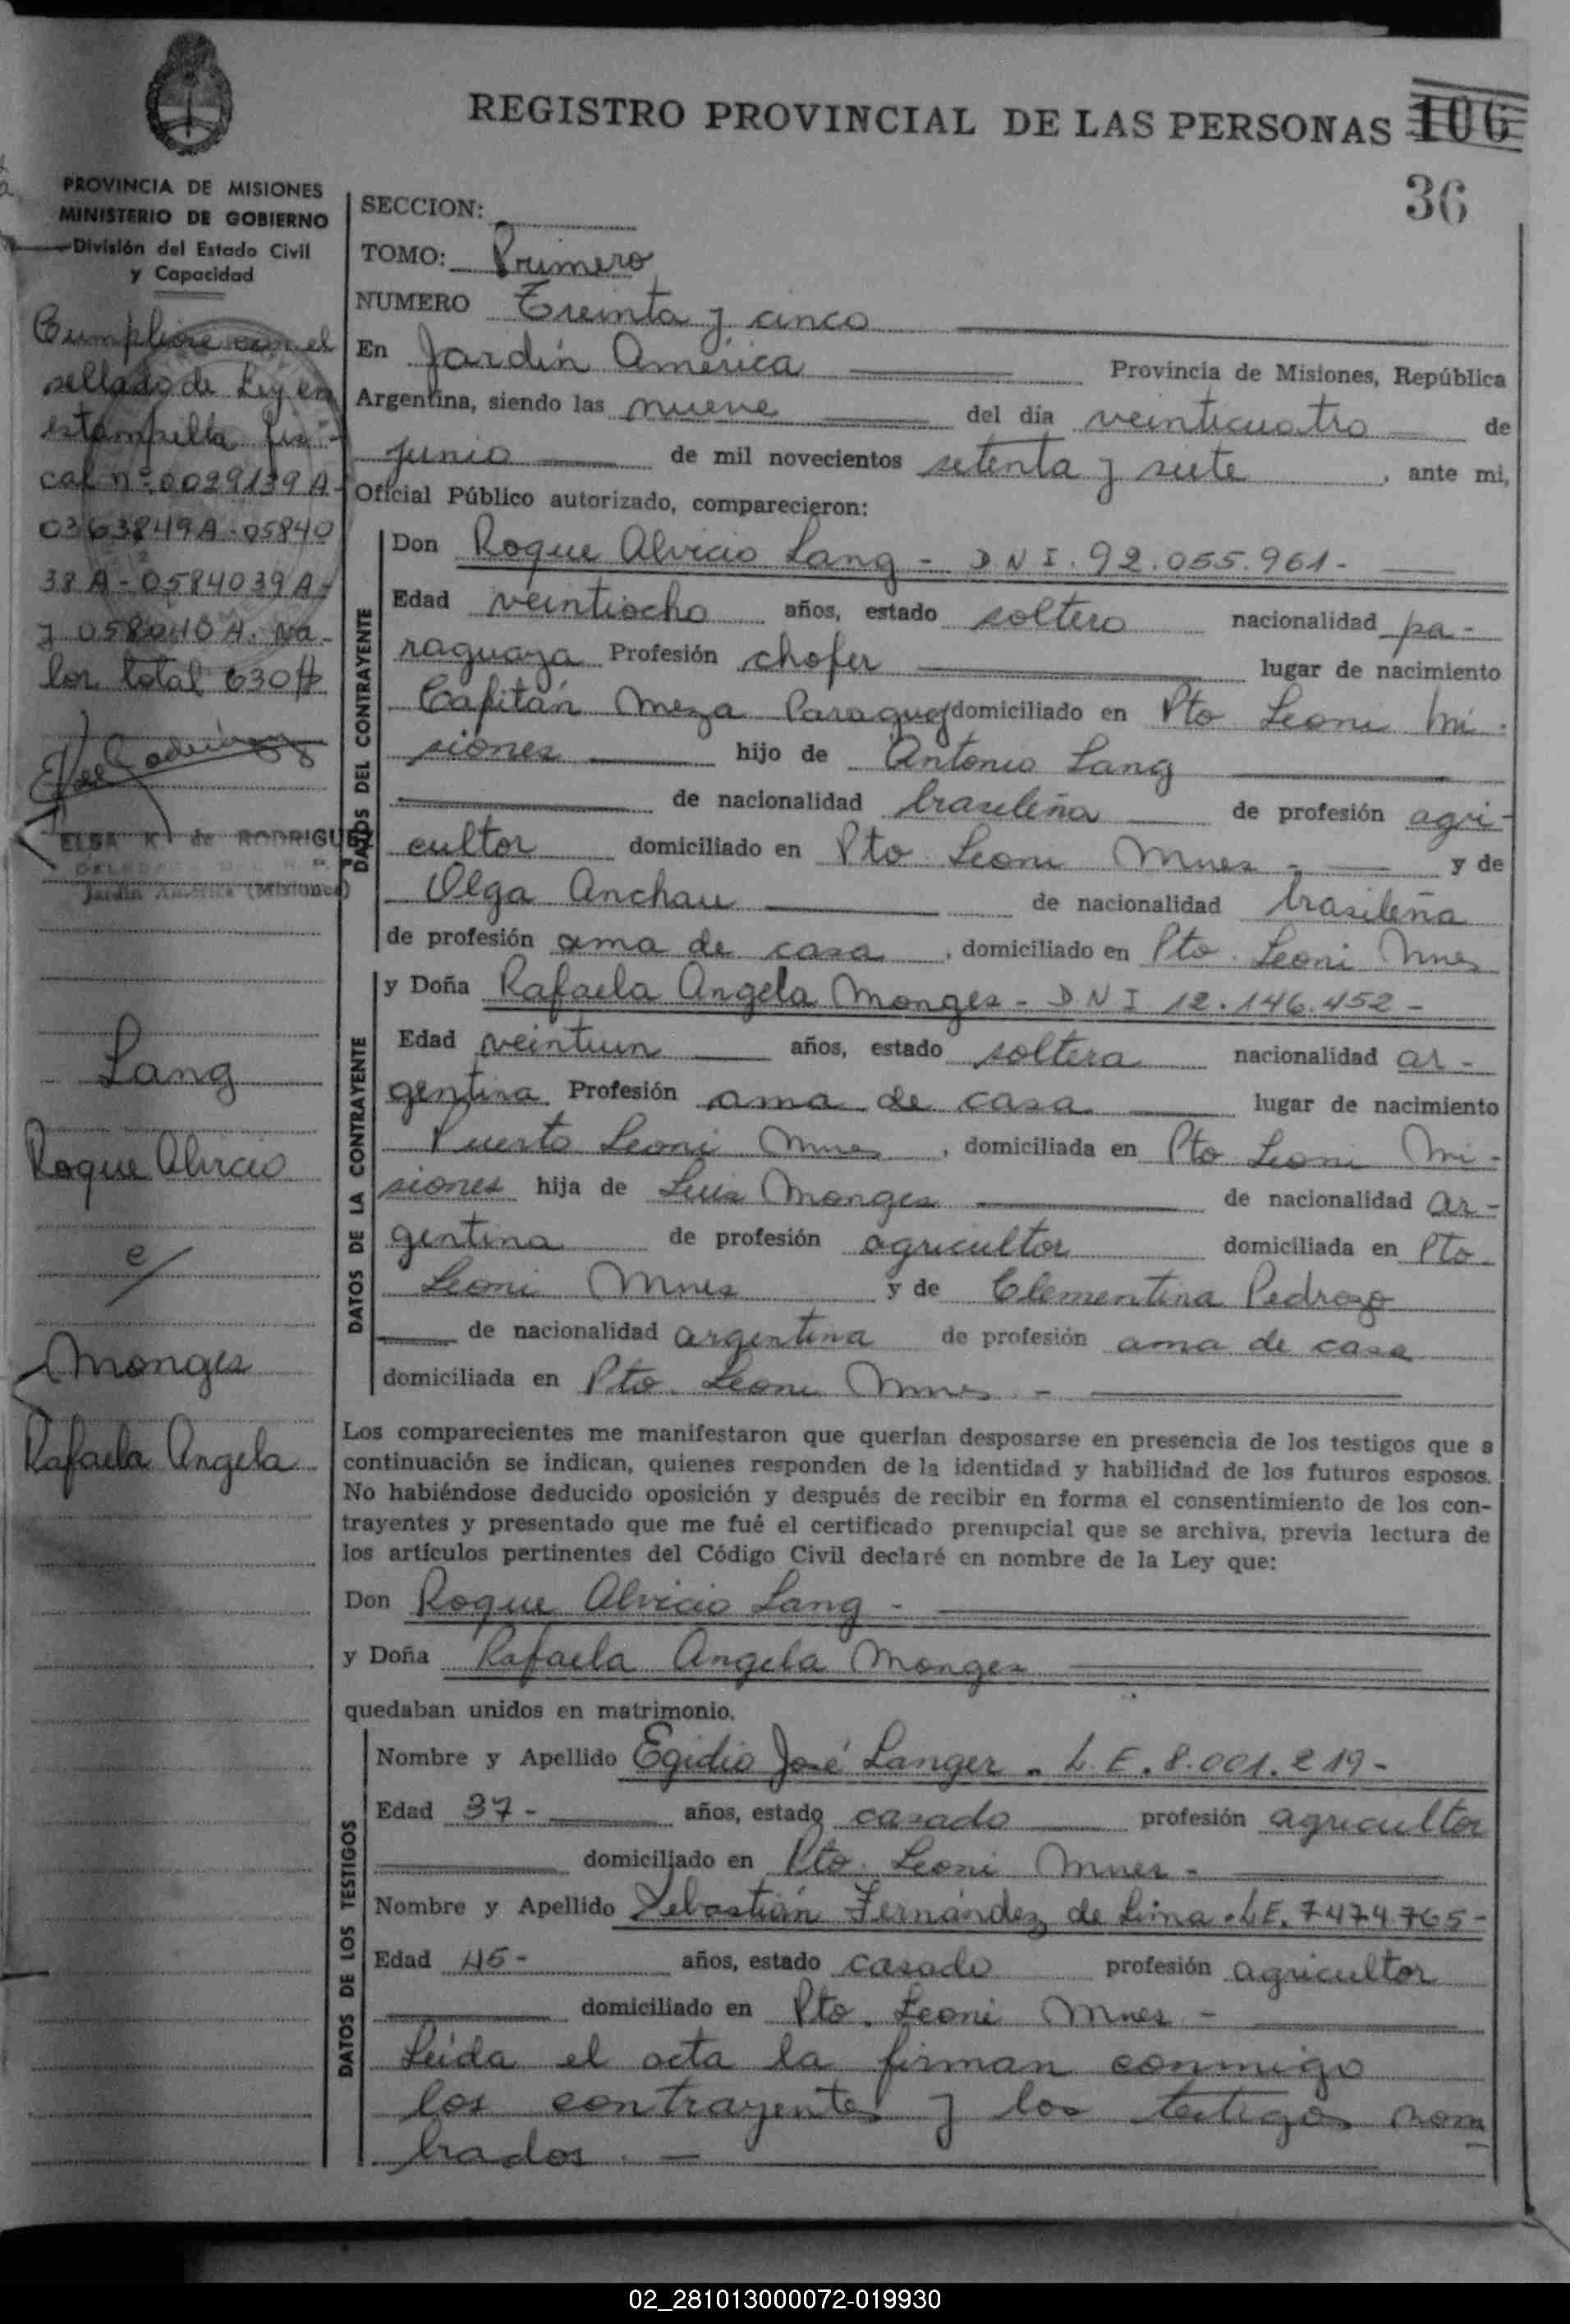 REGISTRO PROVINCIAL DE LAS PERSONAS 106
36
PROVINCIA DE MISIONES
MINISTERIO DE GOBIERNO
División del Estado Civil
y Capacidad
Cumplióse con el
sellado de Ley en
estampilla fis-
cal nº 0029139 A-
0363849A-05840
38 A-0584039 A-
y 058040 A. Va-
lor total 630
ELSA K de RODRIGUEZ
Jardín América (Misiones)
Lang
Roque Alvicio
c/
Monges
Rafaela Angela
SECCION:
TOMO: Primero
NUMERO Treinta y cinco
En Jardín América Provincia de Misiones, República
Argentina, siendo las nueve del día veinticuatro de
junio de mil novecientos setenta y siete, ante mi,
Oficial Público autorizado, comparecieron:
DATOS DEL CONTRAYENTE
Don Roque Alvicio Lang - DNI. 92.055.961-
Edad veintiocho años, estado soltero nacionalidad pa-
raguaya Profesión chofer lugar de nacimiento
Capitán Meza Paraguay domiciliado en Pto Leoni Mi-
siones hijo de Antonio Lang
de nacionalidad brasileña de profesión agri-
cultor domiciliado en Pto Leoni Mnes - y de
Olga Anchau de nacionalidad brasileña
de profesión ama de casa, domiciliado en Pto. Leoni Mnes
DATOS DE LA CONTRAYENTE
y Doña Rafaela Angela Monges - DNI 12.146.452-
Edad veintiun años, estado soltera nacionalidad ar-
gentina Profesión ama de casa lugar de nacimiento
Puerto Leoni Mnes, domiciliada en Pto Leoni Mi-
siones hija de Luis Monges de nacionalidad ar-
gentina de profesión agricultor domiciliada en Pto
Leoni Mnes y de Clementina Pedrozo
de nacionalidad argentina de profesión ama de casa
domiciliada en Pto. Leoni Mnes -
Los comparecientes me manifestaron que querían desposarse en presencia de los testigos que a
continuación se indican, quienes responden de la identidad y habilidad de los futuros esposos.
No habiéndose deducido oposición y después de recibir en forma el consentimiento de los con-
trayentes y presentado que me fué el certificado prenupcial que se archiva, previa lectura de
los artículos pertinentes del Código Civil declaré en nombre de la Ley que:
Don Roque Alvicio Lang -
y Doña Rafaela Angela Monges
quedaban unidos en matrimonio.
DATOS DE LOS TESTIGOS
Nombre y Apellido Egidio José Langer - L.E. 8.001.219-
Edad 37- años, estado casado profesión agricultor
domiciliado en Pto. Leoni Mnes -
Nombre y Apellido Sebastián Fernández de Lima - LE. 7.474.765-
Edad 45- años, estado casado profesión agricultor
domiciliado en Pto. Leoni Mnes -
Leída el acta la firman conmigo
los contrayentes y los testigos nom
brados. -
02_281013000072-019930